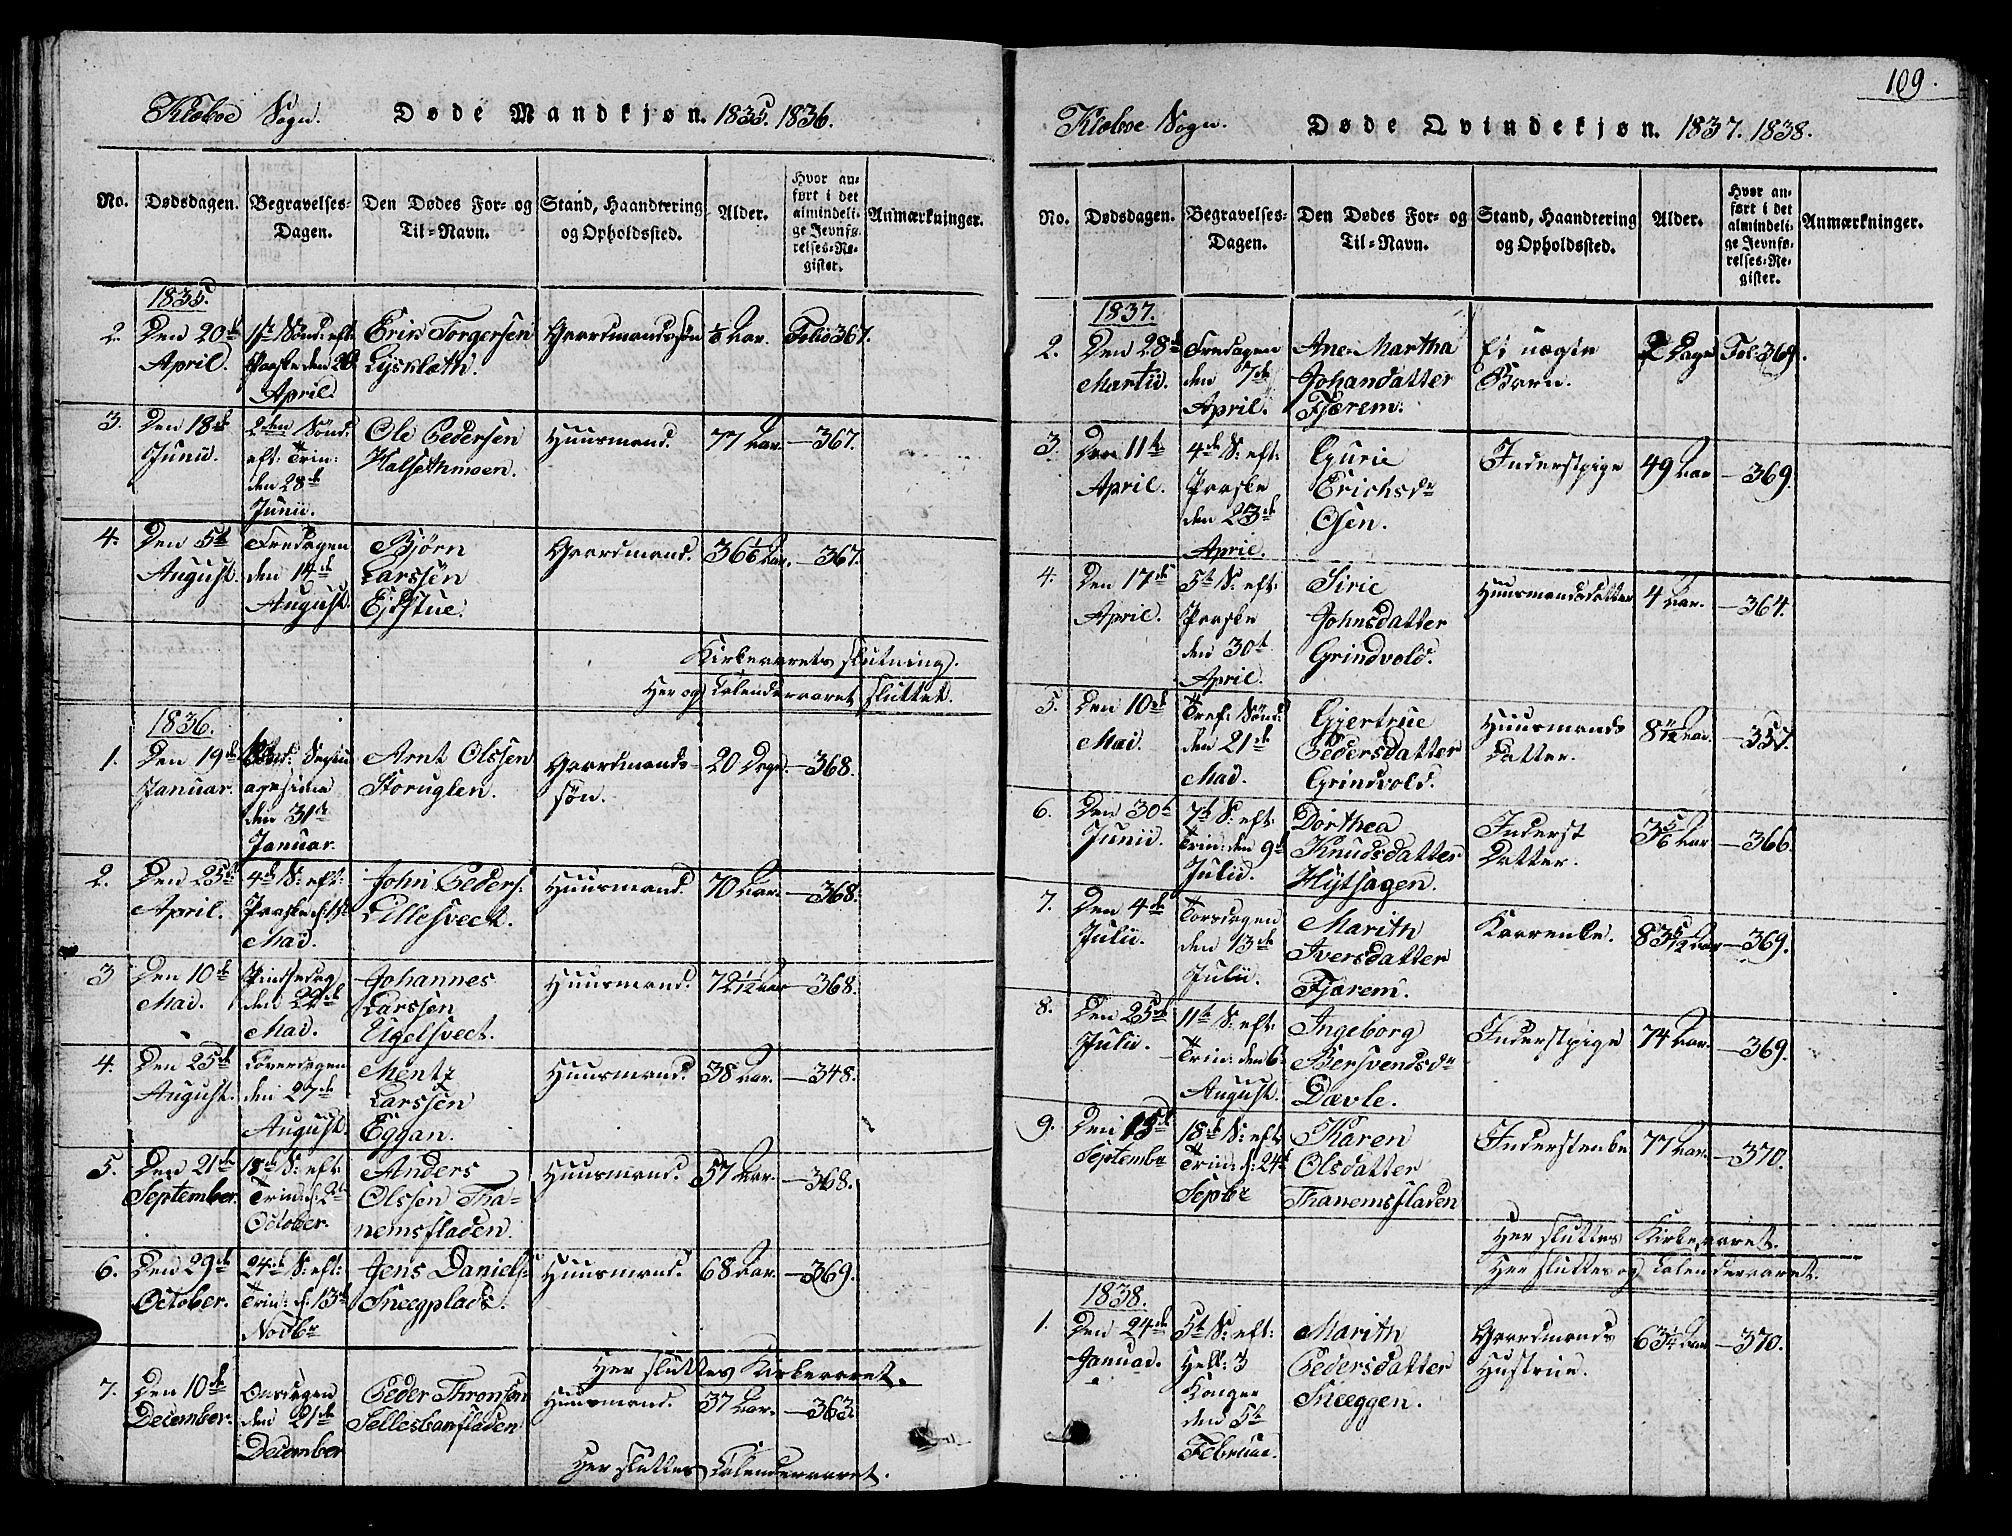 Klæboe Sogn. Døde Mandkjøn. 1835. 1836.
No. Dødsdagen. Begravelses-Dagen. Den Dødes For- og Til-Navn. Stand, Haandtering og Opholdssted. Alder. Hvor anført i det almindelige Jevnførelses-Register. Anmærkninger.
1835
2. Den 20de April. 1ste Sønd: eft: Paaske den 26 April. Erik Torgersen Lysklæth. Gaardmandssøn Aar. Folio 367.
3. Den 18de Junii. 2den Sønd. eft: Trin: den 28de Junii. Ole Pedersen Halsethmoen. Huusmand. 77 Aar. —367.
4. Den 5te August. Fredagen den 14de August. Bjørn Larssen Eidstue. Gaardmand. 36 1/6 Aar. —367.
Kirkeaarets slutning.
Her og Calenderaaret sluttet.
1836.
1. Den 19de Januar. Sønd: Septuagesima den 31te Januar. Arnt Olssen Storuglen. Gaardmands-søn. 20 Dage. —368.
2. Den 25de April. 4de S: eft: Paaske d: 1ste Maii. John Peders. Lillesveet. Huusmand. 70 Aar. —368.
3 Den 10de Maii. Pindsedag den 22de Maii. Johannes Larssen Ugelsveet. Huusmand. 72 1/12 Aar —368.
4. Den 25de August. Løverdagen den 27de August. Mentz Larssen Eggan. Huusmand. 38 Aar. —348.
5. Den 21de September. 18de S: eft: Trin: d: 2de October. Anders Olssen Thanemsfladen. Huusmand. 57 Aar. —368.
6. Den 29de October. 24de S: eft: Trin: d: 13de Novbr Jens Daniels: Sneegplads. Huusmand. 68 Aar. —369.
Her sluttes Kirkeaaret.
7. Den 10de December. Onsdagen den 21de December Peder Thronsen Tellesbonfladen Huusmand. 37 Aar. —363.
Her sluttes Calenderaaret.
109.
Klæboe Sogn. Døde Qvindekjøn. 1837. 1838.
No. Dødsdagen. Begravelses-Dagen. Den Dødes For- og Til-Navn. Stand, Haandtering og Opholdssted. Alder. Hvor anført i det almindelige Jevnførelses-Register. Anmærkninger.
1837.
2. Den 28de Martii. Fredagen den 7de April. Ane Martha Johansdatter Fjærem. Et uægte Barn. 2 Dage Fol: 369.
3. Den 11te April. 4de S: eft: Paaske den 23de April. Gurie Erichsdr Osen. Inderstpige 49 Aar —369.
4. Den 17de April. 5te S: eft: Paaske den 30te April. Sirie Johnsdatter Grindvold. Huusmandsdatter 4 Aar. —364.
5. Den 10de Maii. Tref: Sønd: den 21de Maii. Gjertrue Pedersdatter Grindvold. Huusmands Datter. 8 Aar. —357.
6. Den 30te Junii. 7de S: eft: Trin: den 9de Julii. Dorthea Knudsdatter Hyttsagen. Inderst Datter. 3 5/6 Aar —366.
7. Den 4de Julii. Torsdagen den 13de Julii. Marith Iversdatter Fjærem. Kaarenke. 83 5/12 Aar —369.
8. Den 25de Julii. 11te S: eft: Trin: den 6te August. Ingeborg Bersvendsdr Dævle. Inderstpige 74 Aar. —369.
9. Den 15de Septembr 18de S: eft: Trin: d: 24de Sepbr Karen Olsdatter Thanemsfladen Inderstenke 77 Aar. —370.
Her sluttes Kirkeaaret.
Her sluttes og Calenderaaret.
1838.
1. Den 24de Januar. 5te S: eft: Hell: 3 Konger den 5te Februar. Marith Pedersdatter Sneeggen. Gaardmands Hustrue. 63 1/4 Aar —370.